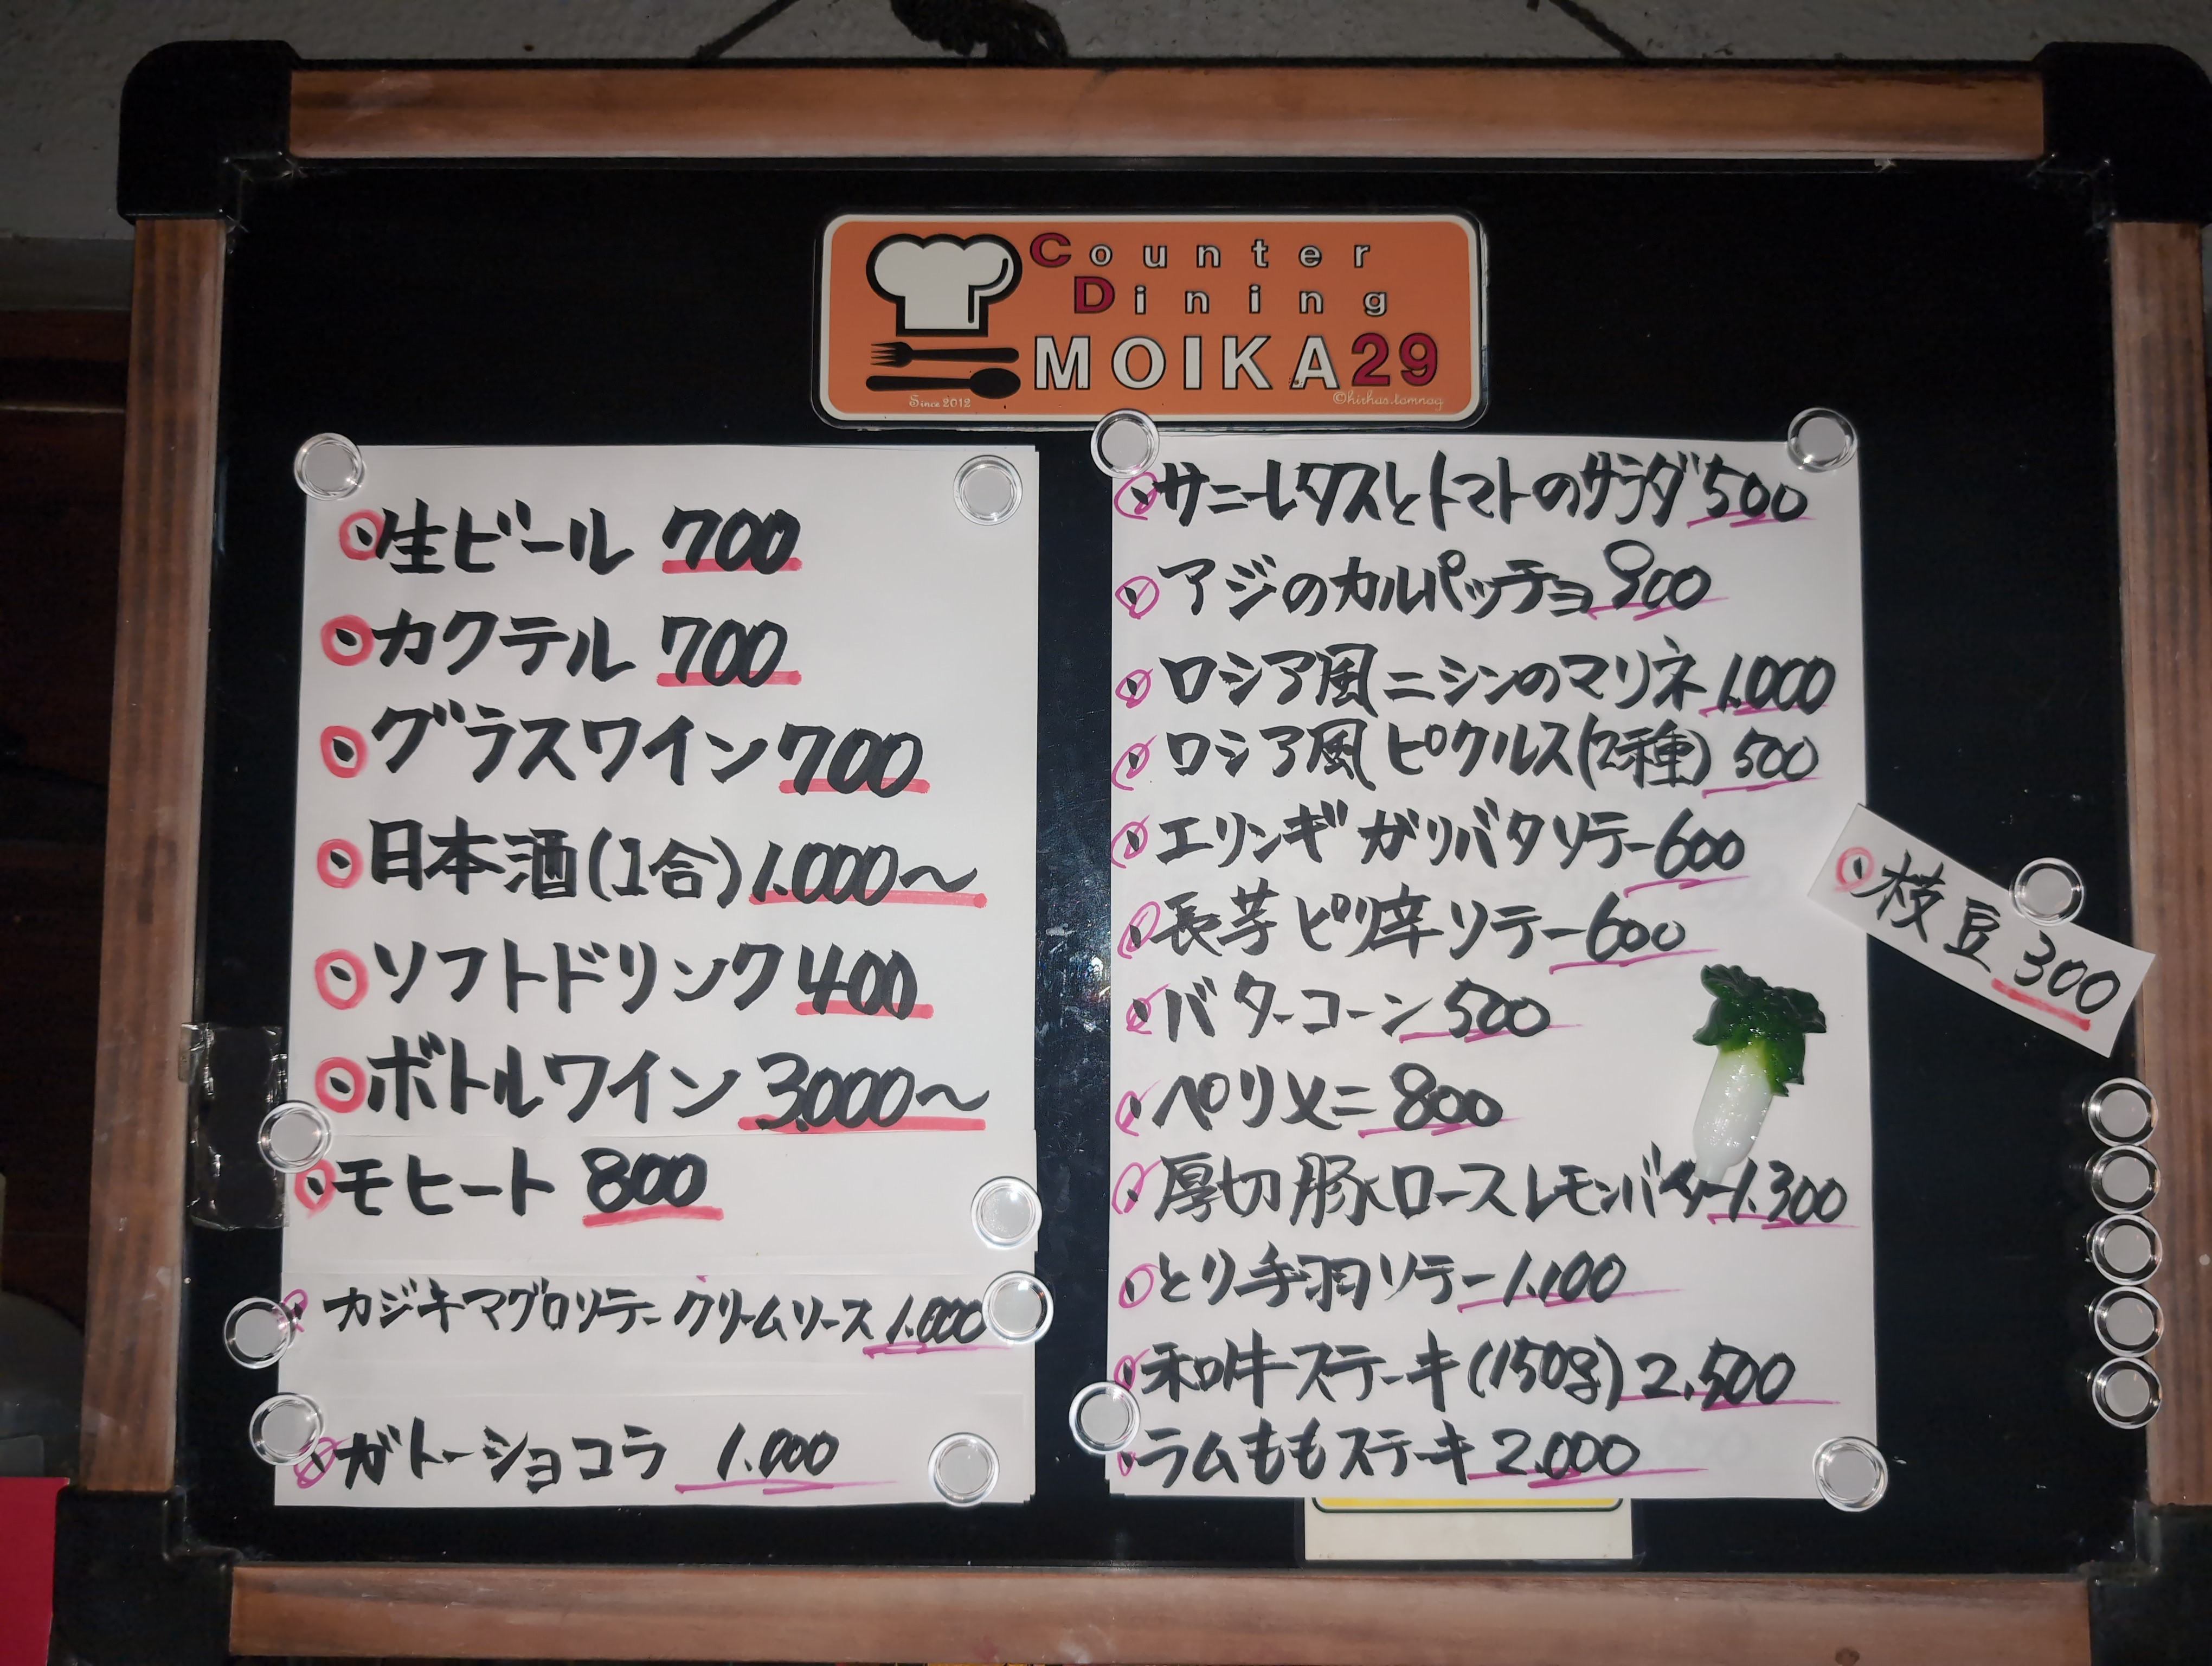 Counter
Dining
MOIKA29
Since 2012
©hirhas.tomnog
生ビール 700
カクテル 700
グラスワイン 700
日本酒(1合) 1.000〜
ソフトドリンク 400
ボトルワイン 3.000〜
モヒート 800
カジキマグロソテー クリームソース 1.000
ガトーショコラ 1.000
サニーレタスとトマトのサラダ 500
アジのカルパッチョ 900
ロシア風ニシンのマリネ 1.000
ロシア風ピクルス(2種) 500
エリンギ ガリバタソテー 600
長芋ピリ辛ソテー 600
バターコーン 500
ペリメニ 800
厚切豚ロースレモンバター 1.300
とり手羽ソテー 1.100
和牛ステーキ(150g) 2.500
ラムももステーキ 2.000
枝豆 300